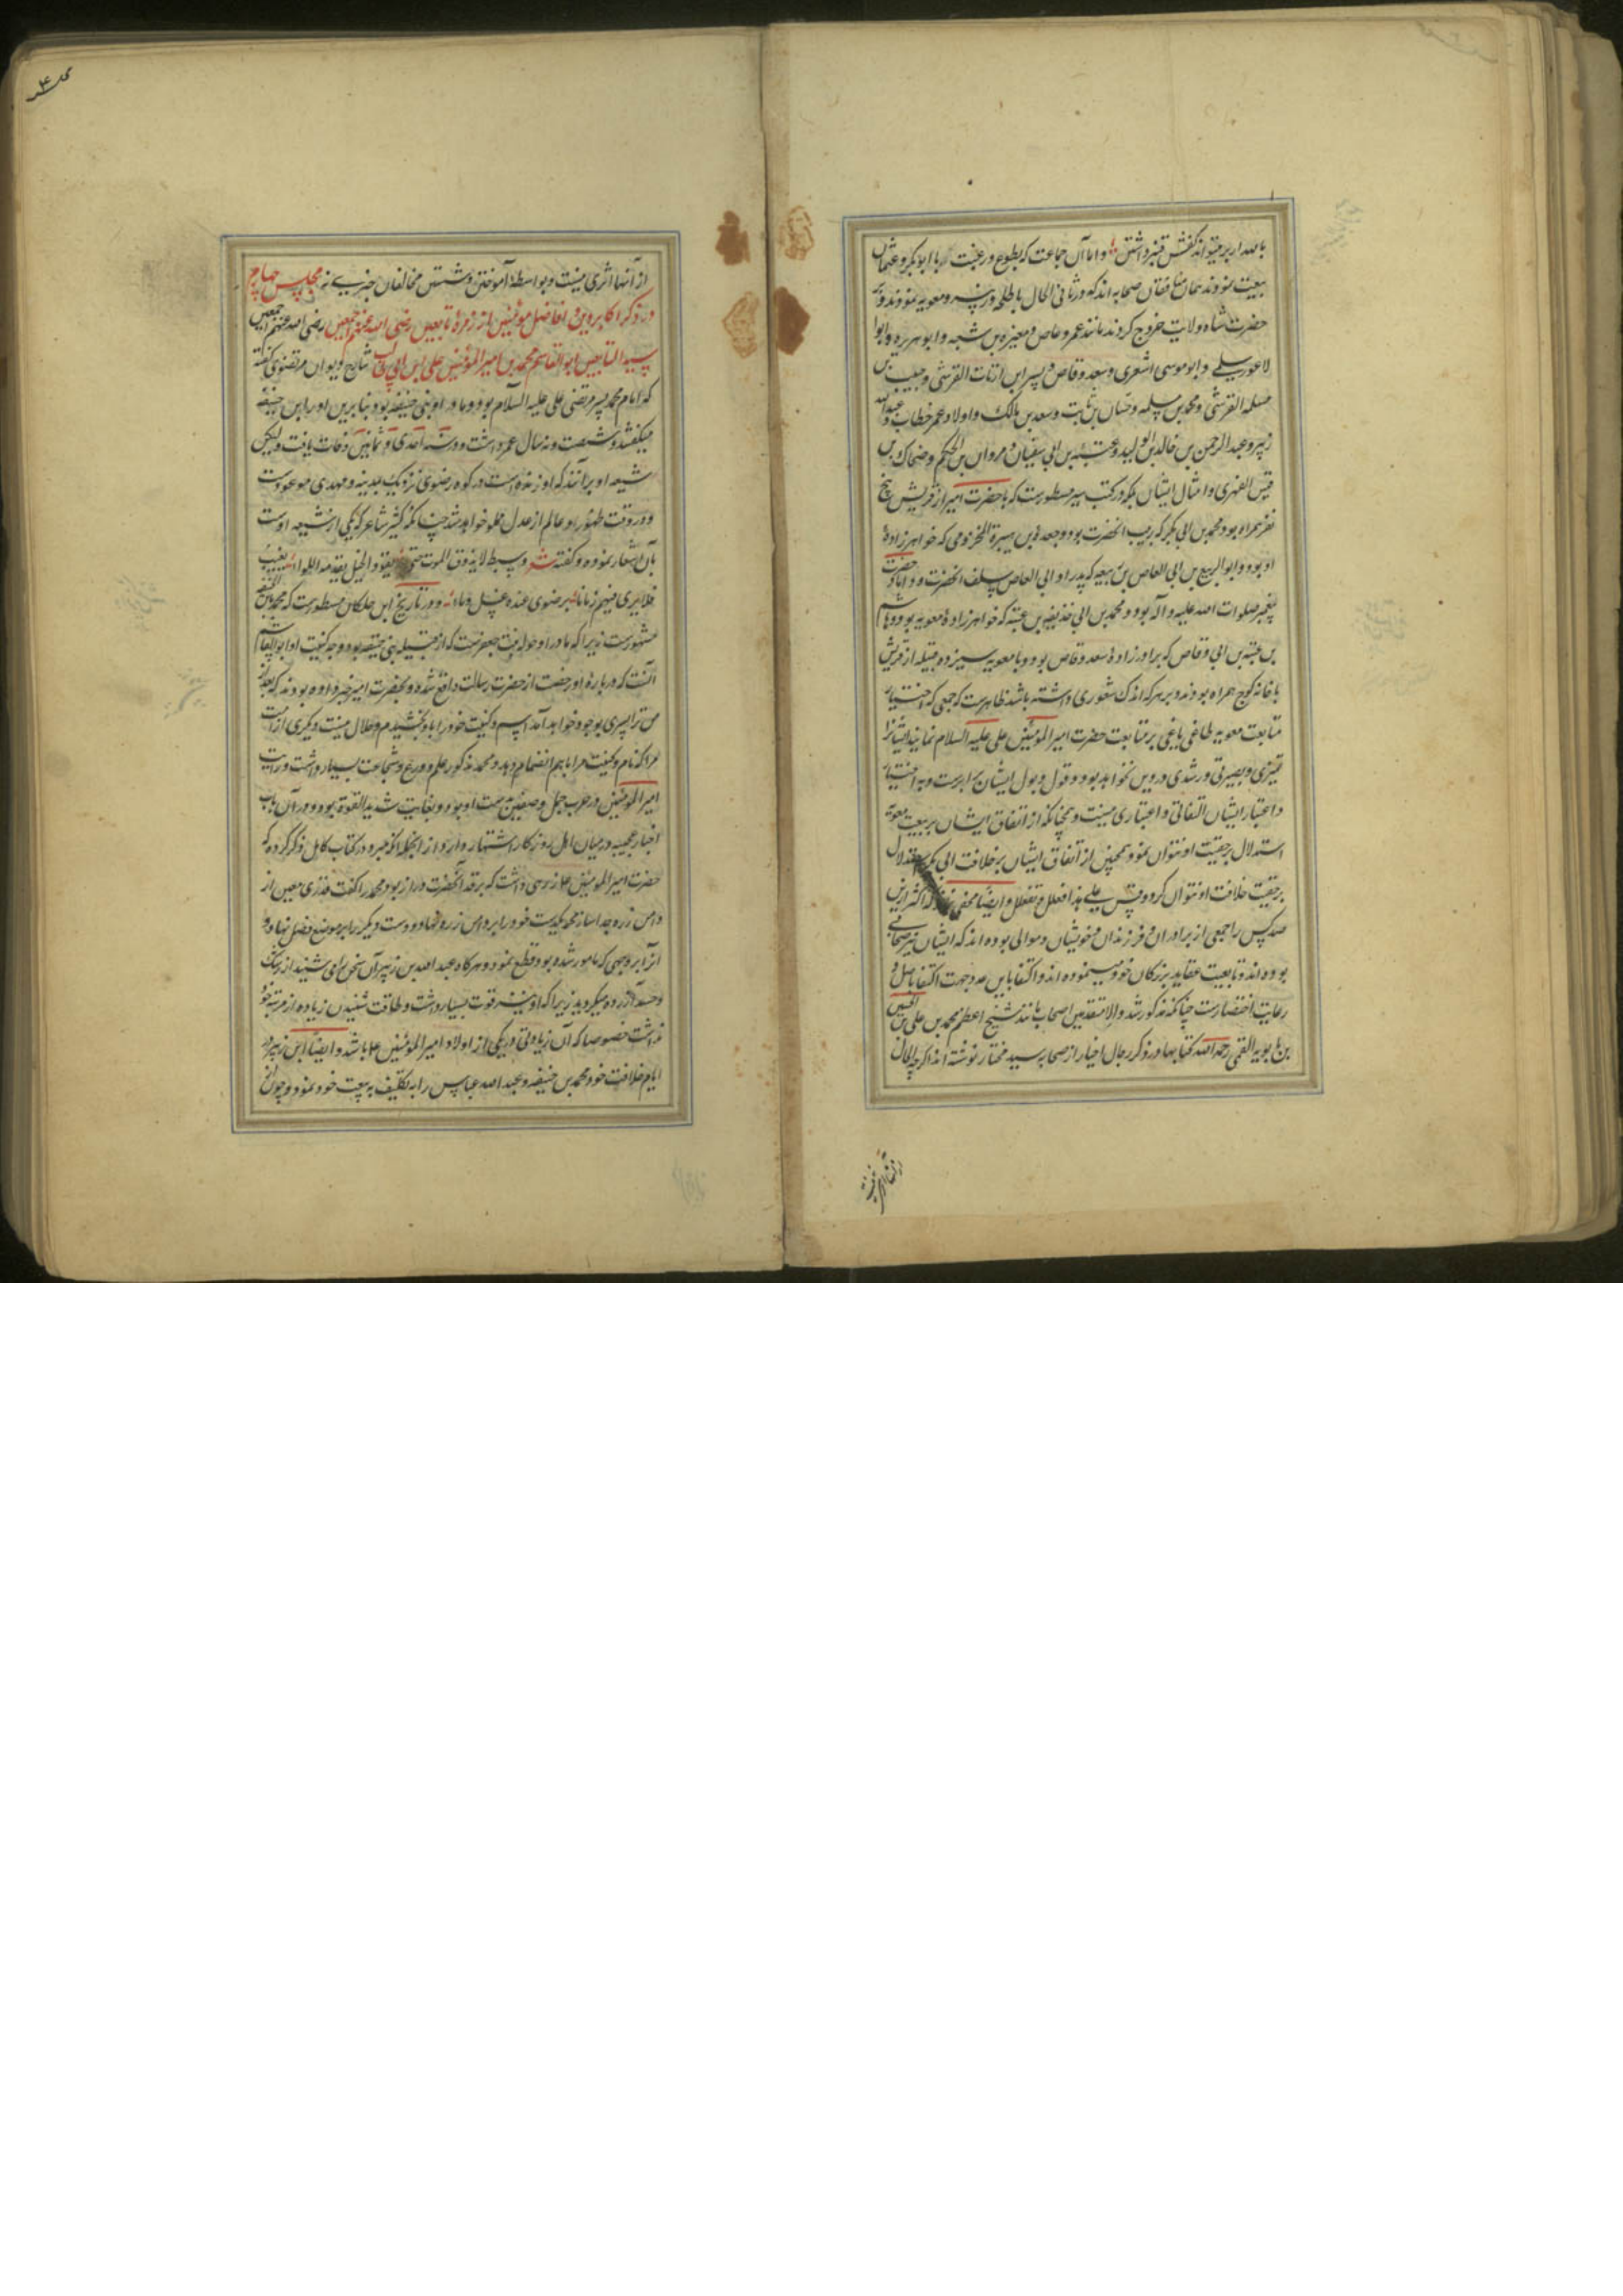 بامداد بر میتواند کفش قنبر داشتن و اما آن جماعت که بطوع و رغبت با ابوبکر و عثمان
بیعت نمودند همان منافقان صحابه اند که در ثانی الحال با طلحه و زبیر و معویه نمودند و بر
حضرت شاه ولایت خروج کردند مانند عمرو عاص و مغیره بن شعبه و ابو هریره و ابوا
لاعور سلمی و ابو موسی اشعری و سعد وقاص و بسر ابن ارتات القرشی و حبیب بن
مسلمه القرشی و محمد بن مسلمه و حسان بن ثابت و سعد بن مالک و اولاد عمر خطاب و عبدالله
زبیر و عبد الرحمن بن خالد بن الولید و عتبه بن ابی سفیان و مروان بن الحکم و ضحاک بن
قیس الفهری و امثال ایشان بلکه در کتب سیر مسطورست که با حضرت امیر از قریش پنج
نفر همراه بود محمد بن ابی بکر که ربیب انحضرت بود و جعده بن هبیرة المخزومی که خواهر زادهٔ
او بود و ابو الربیع بن ابی العاص بن ربیعه که پدر او ابی العاص سلف انحضرت و داماد حضرت
پیغمبر صلوات الله علیه و آله بود و محمد بن ابی حذیفه بن عتبه که خواهر زادهٔ معویه بود و هاشم
بن عتبه بن ابی وقاص که برادر زادهٔ سعد وقاص بود و با معویه سیزده قبیله از قریش
با خانه کوچ همراه بودند و بر هر که اندک شعوری داشته باشد ظاهرست که جمعی که اختیار
متابعت معویه طاغی یاغی بر متابعت حضرت امیر المؤمنین علی علیه السلام نمایند ایشانرا
تمیزی و بصیرتی و رشدی در دین نخواهد بود و قول و بول ایشان برابرست و به اختیار
و اعتبار ایشان التفاتی و اعتباری نیست و همچنانکه از اتفاق ایشان بر بیعت معویه
استدلال بر حقیت او نتوان نمود همچنین از اتفاق ایشان بر خلافت ابی بکر استدلال
بر حقیت خلافت او نتوان کرد و قس علی هذا فعلل و تفعلل و ایضا مخفی نماند که اکثر این
صد کس را جمعی از برادران و فرزندان و خویشان و موالی بوده اند که ایشان نیز صحابی
بوده اند و تابعیت عقاید بزرگان خود مینموده اند و اکتفا باین عدد جهت اکتفا باصل و
رعایت اختصارست چنانکه مذکور شد و الا متقدمین اصحاب مانند شیخ اعظم محمد بن علی بن الحسین
بن بابویه القمی رحمه الله کتابها در ذکر رجال اخیار از صحابه سید مختار نوشته اند اگر چه الحال
از آنها اثری نیست و بواسطهٔ آموختن و شستن مخالفان خبری نه مجلس چهارم
در ذکر اکابر دین و افاضل مؤمنین از زمرهٔ تابعین رضی الله عنهم اجمعین رضی الله عنهم اجمعین
سید التابعین ابو القاسم محمد بن امیر المؤمنین علی بن ابی طالب شارح دیوان مرتضوی گفته
که امام محمد پسر مرتضی علی علیه السلام بود و مادر او بنی حنیفه بود بنابرین او را ابن حنیفه
میگفتند و شصت و نه سال عمر داشت و در سنه احدی و ثمانین وفات یافت و لیکن
شیعه او برآنند که او زنده است در کوه رضوی نزدیک بمدینه و مهدی موعودست
و در وقت ظهور او عالم از عدل مملو خواهد شد چنانکه کثیر شاعر که یکی از شیعه اوست
بآن اشعار نموده و گفته شعر و سبط لا یذوق الموت حتی یقود الخیل یقدمه اللواء یغیب
فلا یری فیهم زمانا برضوی عنده عسل و ماء و در تاریخ ابن خلکان مسطورست که محمد بابن الحنفیه
مشهورست زیرا که مادر او خوله بنت جعفرست که از قبیله بنی حنیفه بود و وجه کنیت او بابو القاسم
آنست که در بارهٔ او رخصت از حضرت رسالت واقع شده و بحضرت امیر خبر داده بودند که بعد از
من ترا پسری بوجود خواهد آمد اسم و کنیت خود را باو بخشیدم و حلال نیست دیگری از امت
مرا که نام و کنیت مرا باهم انضمام دهد و محمد مذکور علم و ورع و شجاعت بسیار داشت و رایت
امیر المؤمنین در حرب جمل و صفین بدست او بود و بغایت شدید القوة بود و در آن باب
اخبار عجیبه در میان اهل روزگار اشتهار دارد و از انجمله انکه مبرد در کتاب کامل ذکر کرده که
حضرت امیر المؤمنین ع زرهی داشت که بر قد آنحضرت دراز بود محمد را گفت قدری معین از
دامن زره جدا سازد محمد بیکدست خود را بر دامن زره نهاد و دست دیگر را بر موضع فضل نهاد و
آنرا بر وجهی که مامور شده بود قطع نمود و هرگاه عبد الله بن زبیر آن سخن را می شنید از رشک
و حسد آزرده میگردید زیرا که او نیز قوت بسیار داشت و طاقت شنیدن زیاده از مرتبه خود
نداشت خصوصا که آن زیادتی در یکی از اولاد امیر المؤمنین ع باشد و ایضا ابن زبیر در
ایام خلافت خود محمد بن حنیفه و عبد الله عباس را به تکلیف به بیعت خود نمود و چون